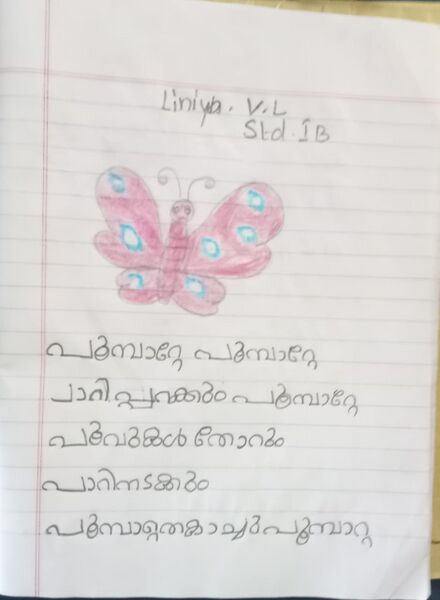 Liniya. V.L
Std. I B
പൂമ്പാറ്റേ പൂമ്പാറ്റേ
പാറിപ്പറക്കും പൂമ്പാറ്റേ
പൂവുകൾ തോറും
പാറിനടക്കും
പൂമ്പാറ്റ